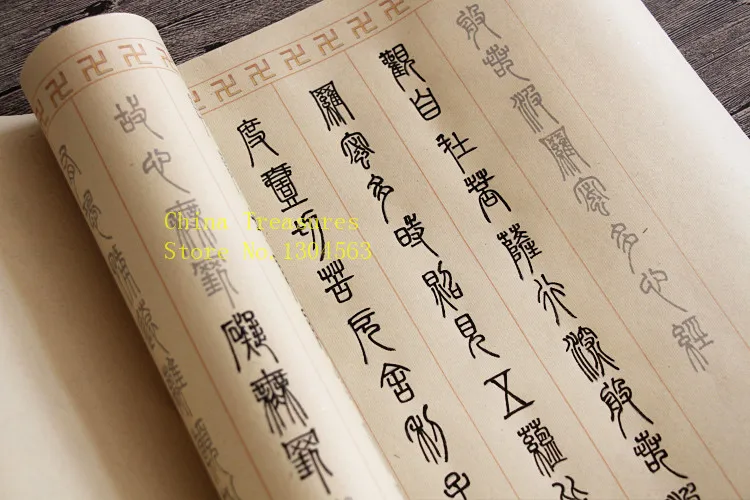 般若波羅蜜多心經
觀自在菩薩行深般若
羅蜜多時照見五蘊
度壹切苦厄舍利子
故心無罣礙無罣
China Treasures
Story No.1304563